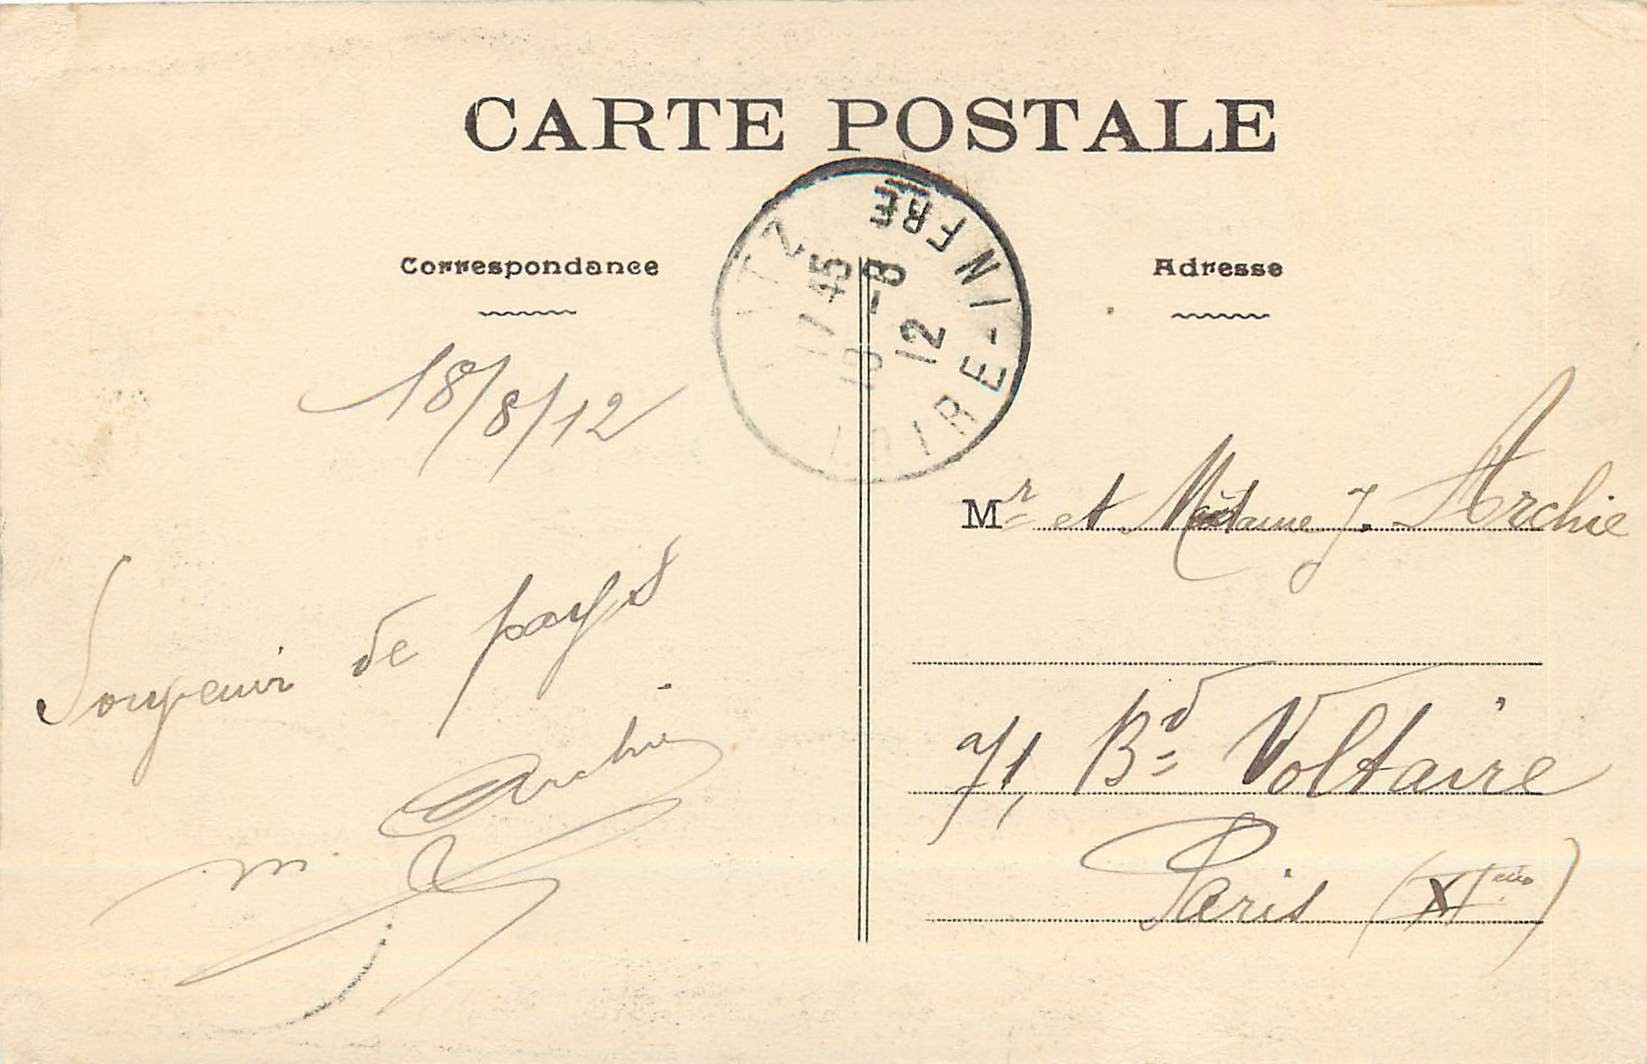 CARTE POSTALE
Correspondance
Adresse
17 45
18 -8
12
LOIRE-INFRE
18/8/12
Souvenir de pays
Archie
Mr et Madame J. Archie
71, Bd Voltaire
Paris (XIeme)